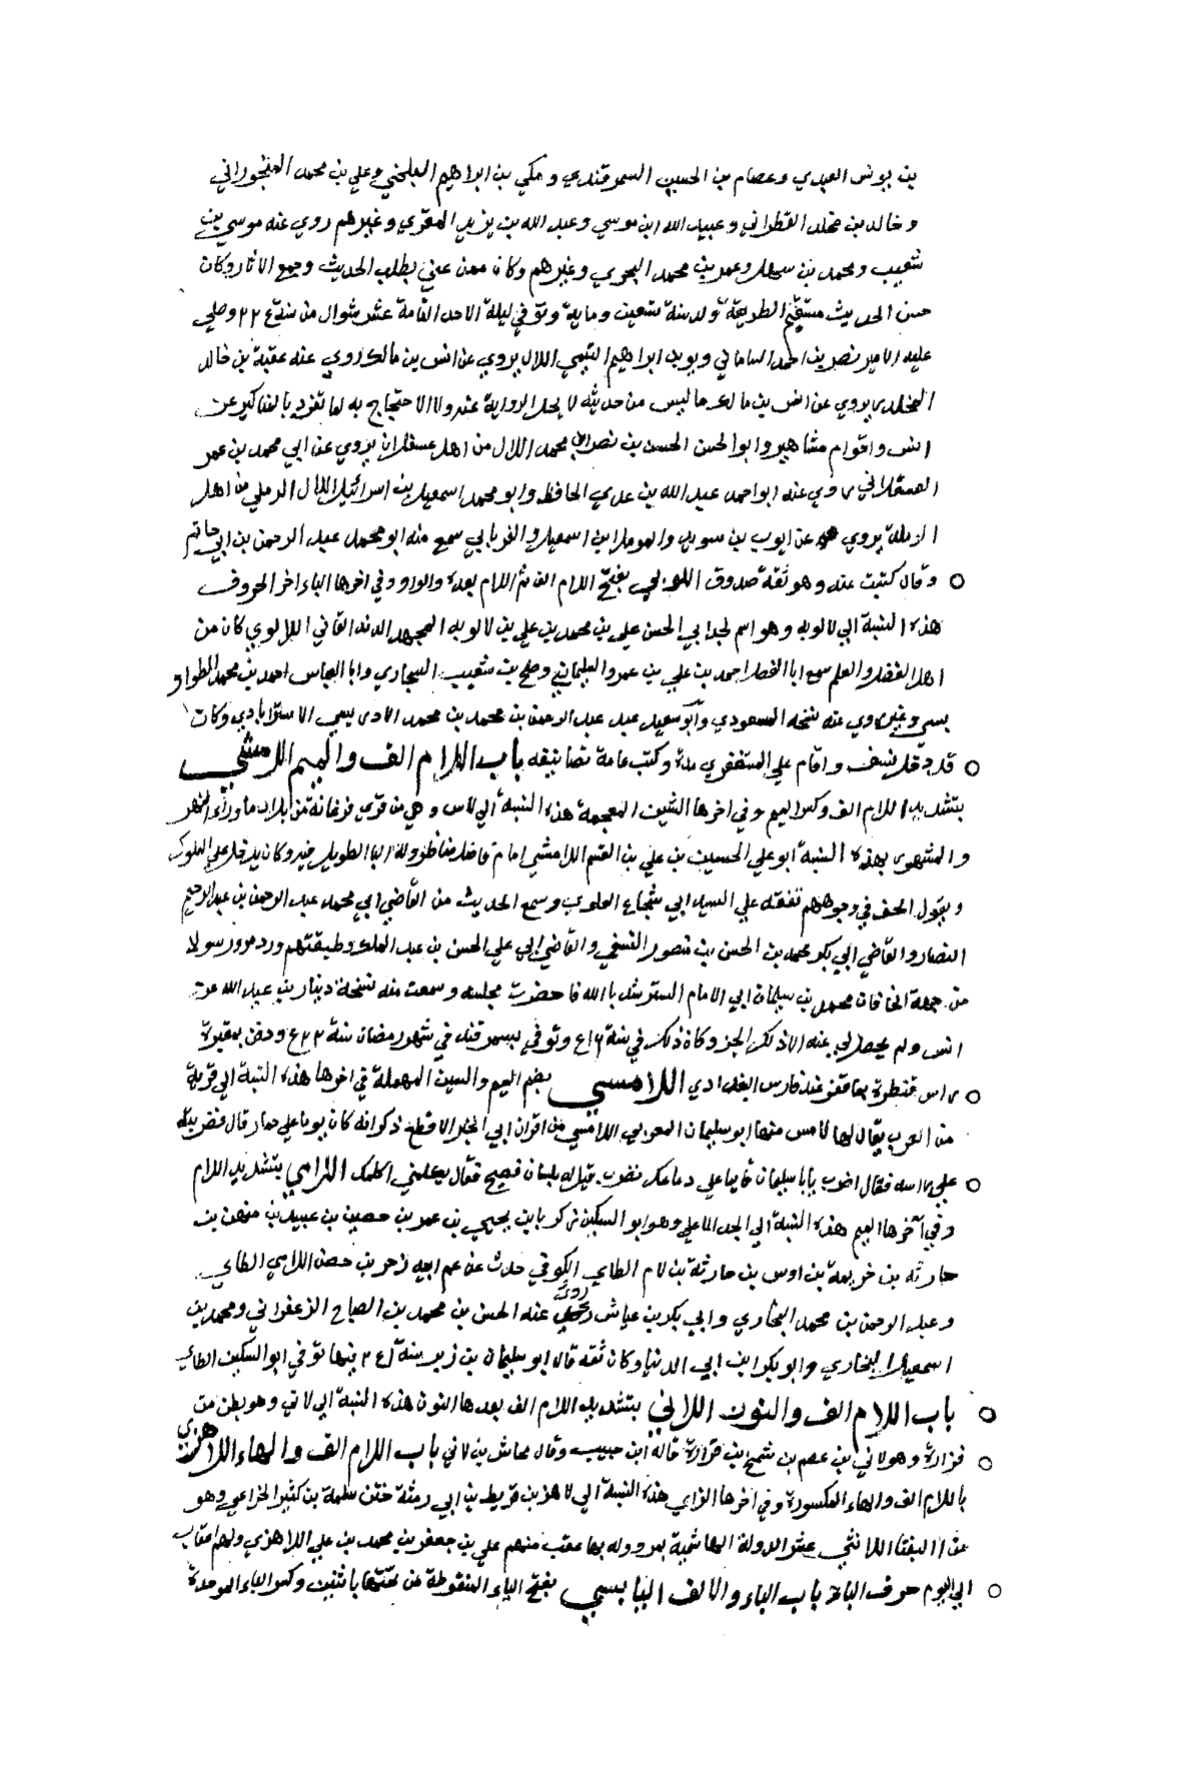 بن يونس العبدي وعصام بن الحسين السمرقندي ومكي بن ابراهيم البلخي وعلي بن محمد المنجوراني
وخالد بن مخلد القطراني وعبيد الله ابن موسي وعبد الله بن يزيد المقري وغيرهم روي عنه موسي بن
شعيب ومحمد بن سهل وعمر بن محمد البحري وغيرهم وكان ممن عني بطلب الحديث وجمع الاثار وكان
حسن الحديث مستقيم الطريقة ولد سنة تسعين وماية وتوفي ليلة الاحد الثامة عشر شوال من وصلي
عليه الامير نصر بن احمد الساماني وبوب ابراهيم التيمي اللال يروي عن انس بن مالك روي عنه عقبة بن خالد
المخلدي يروي عن انس بن مالك ما ليس من حديثه لا يحل الرواية عنه ولا الاحتجاج به لما تفرد بالمناكير عن
انس واقوام مشاهير وابو الحسن الحسن بن نصر ابن محمد اللال من اهل عسقلان يروي عن ابي محمد بن عمر
العسقلاني روي عنه ابو احمد عبد الله بن عدي الحافظ وابو محمد اسمعيل بن اسرائيل اللال الرملي من اهل
الرملة يروي عن ايوب بن سويد والمومل ابن اسمعيل والفريابي سمع منه ابو محمد عبد الرحمن بن ابي حاتم
وقال كتبت عنه وهو ثقة صدوق اللالوبي بفتح اللام الف ثم اللام بعدة والواو وفي اخرها الياء اخر الحروف
هذه النسبة الي لالويه وهو اسم لجد ابي الحسن علي بن محمد بن علي بن لالويه المجهد الدندانقاني اللالوي كان من
اهل الفضل والعلم سمع ابا الفضل احمد بن علي بن عمرو السليماني وصلح بن شعيب السجاري وابا العباس احمد بن محمد الطواو
بسي وغيره روي عنه شيخه السعودي وابو سعيد عبد الرحمن بن محمد بن محمد الادريسي الاستراباذي وكان
قد دخل نسف واقام علي المستغفري مدة وكتب عامة تصانيفه باب اللام الف والميم اللامشي
بتشديد اللام الف وكسر الميم وفي اخرها الشين المعجمة هذه النسبة الي لامس وهي من قري فرغانة من بلاد ما وراء النهر
والمشهور بهذه النسبة ابو علي الحسين بن علي بن القسم اللامشي امام فاضل مناظر وله البا الطويل فيه وكان يدخل علي الملوك
ويقول الحق في وجوههم تفقه علي السيد ابي شجاع العلوي وسمع الحديث من القاضي ابي محمد عبد الرحمن بن عبد الرحيم
القصار والقاضي ابي بكر محمد بن الحسن بن منصور النسفي والقاضي ابي علي الحسن بن عبد الملك وطبقتهم ورد مرو رسولا
من جهة الخاقان محمد بن سليمان الي الامام المسترشد بالله فا حضرت مجلسه وسمعت منه نسخة دينار بن عبد الله عن
انس ولم يحصل لي عنه الا ذلك الجزو كان ذلك في سنة وتوفي بسمرقند في شهور رمضان سنة ودفن بمقبرة
راس قنطرة بماقفر عند فارس البغدادي اللامسي بضم الميم والسين المهملة في اخرها هذه النسبة الي قرية
من العرب يقال لها لامس منها ابو سليمان المغربي اللامسي من اقران ابي الخير الاقطع ذكر انه كان يوما علي حمار قال فضربته
علي راسه فقال اضرب يا ابا سليمان فانما علي دماغك نضرب قيل له بلسان فصيح فقال يكلمني اكلمك اللامي بتشديد اللام
وفي آخرها الميم هذه النسبة الي الجد الاعلي وهو ابو السكين زكريا بن يحيي بن عمر بن حصين بن عبيد بن منهن بن
حارثه بن خريمة بن اوس بن حارثة بن لام الطايي الكوفي حدث عن عم ابيه زحر بن حصن اللامي الطاي
وعبد الرحمن بن محمد البخاري وابي بكر بن عياش روي عنه الحسن بن محمد بن الصباح الزعفراني ومحمد بن
اسمعيل البخاري وابو بكر ابن ابي الدنيا وكان ثقه قال ابو سليمان بن زبر سنة فيها توفي ابو السكين الطاي
باب اللام الف والنون اللاني بتشديد اللام الف بعدها النون هذه النسبة الي لاني وهو بطن من
فزارة وهو لاني بن عصم بن شمخ بن فزارة قاله ابن حبيب وقال محاسن بن لاني باب اللام الف والهاء اللاهزي
باللام الف والهاء المكسورة وفي اخرها الزاي هذه النسبة الي لاهز بن قريظ بن ابي رمثة ختن سلمة بن كثير الخزاعي وهو
من النقبا الاثني عشر الدولة الهاشمية بمرو وله بها عقب منهم علي بن جعفر بن محمد بن علي اللاهزي ولهم اعقاب
الي اليوم حرف الياء باب الياء والالف اليابسي بفتح الياء المنقوطة من تحتها باثنين وكسر الباء الموحدة